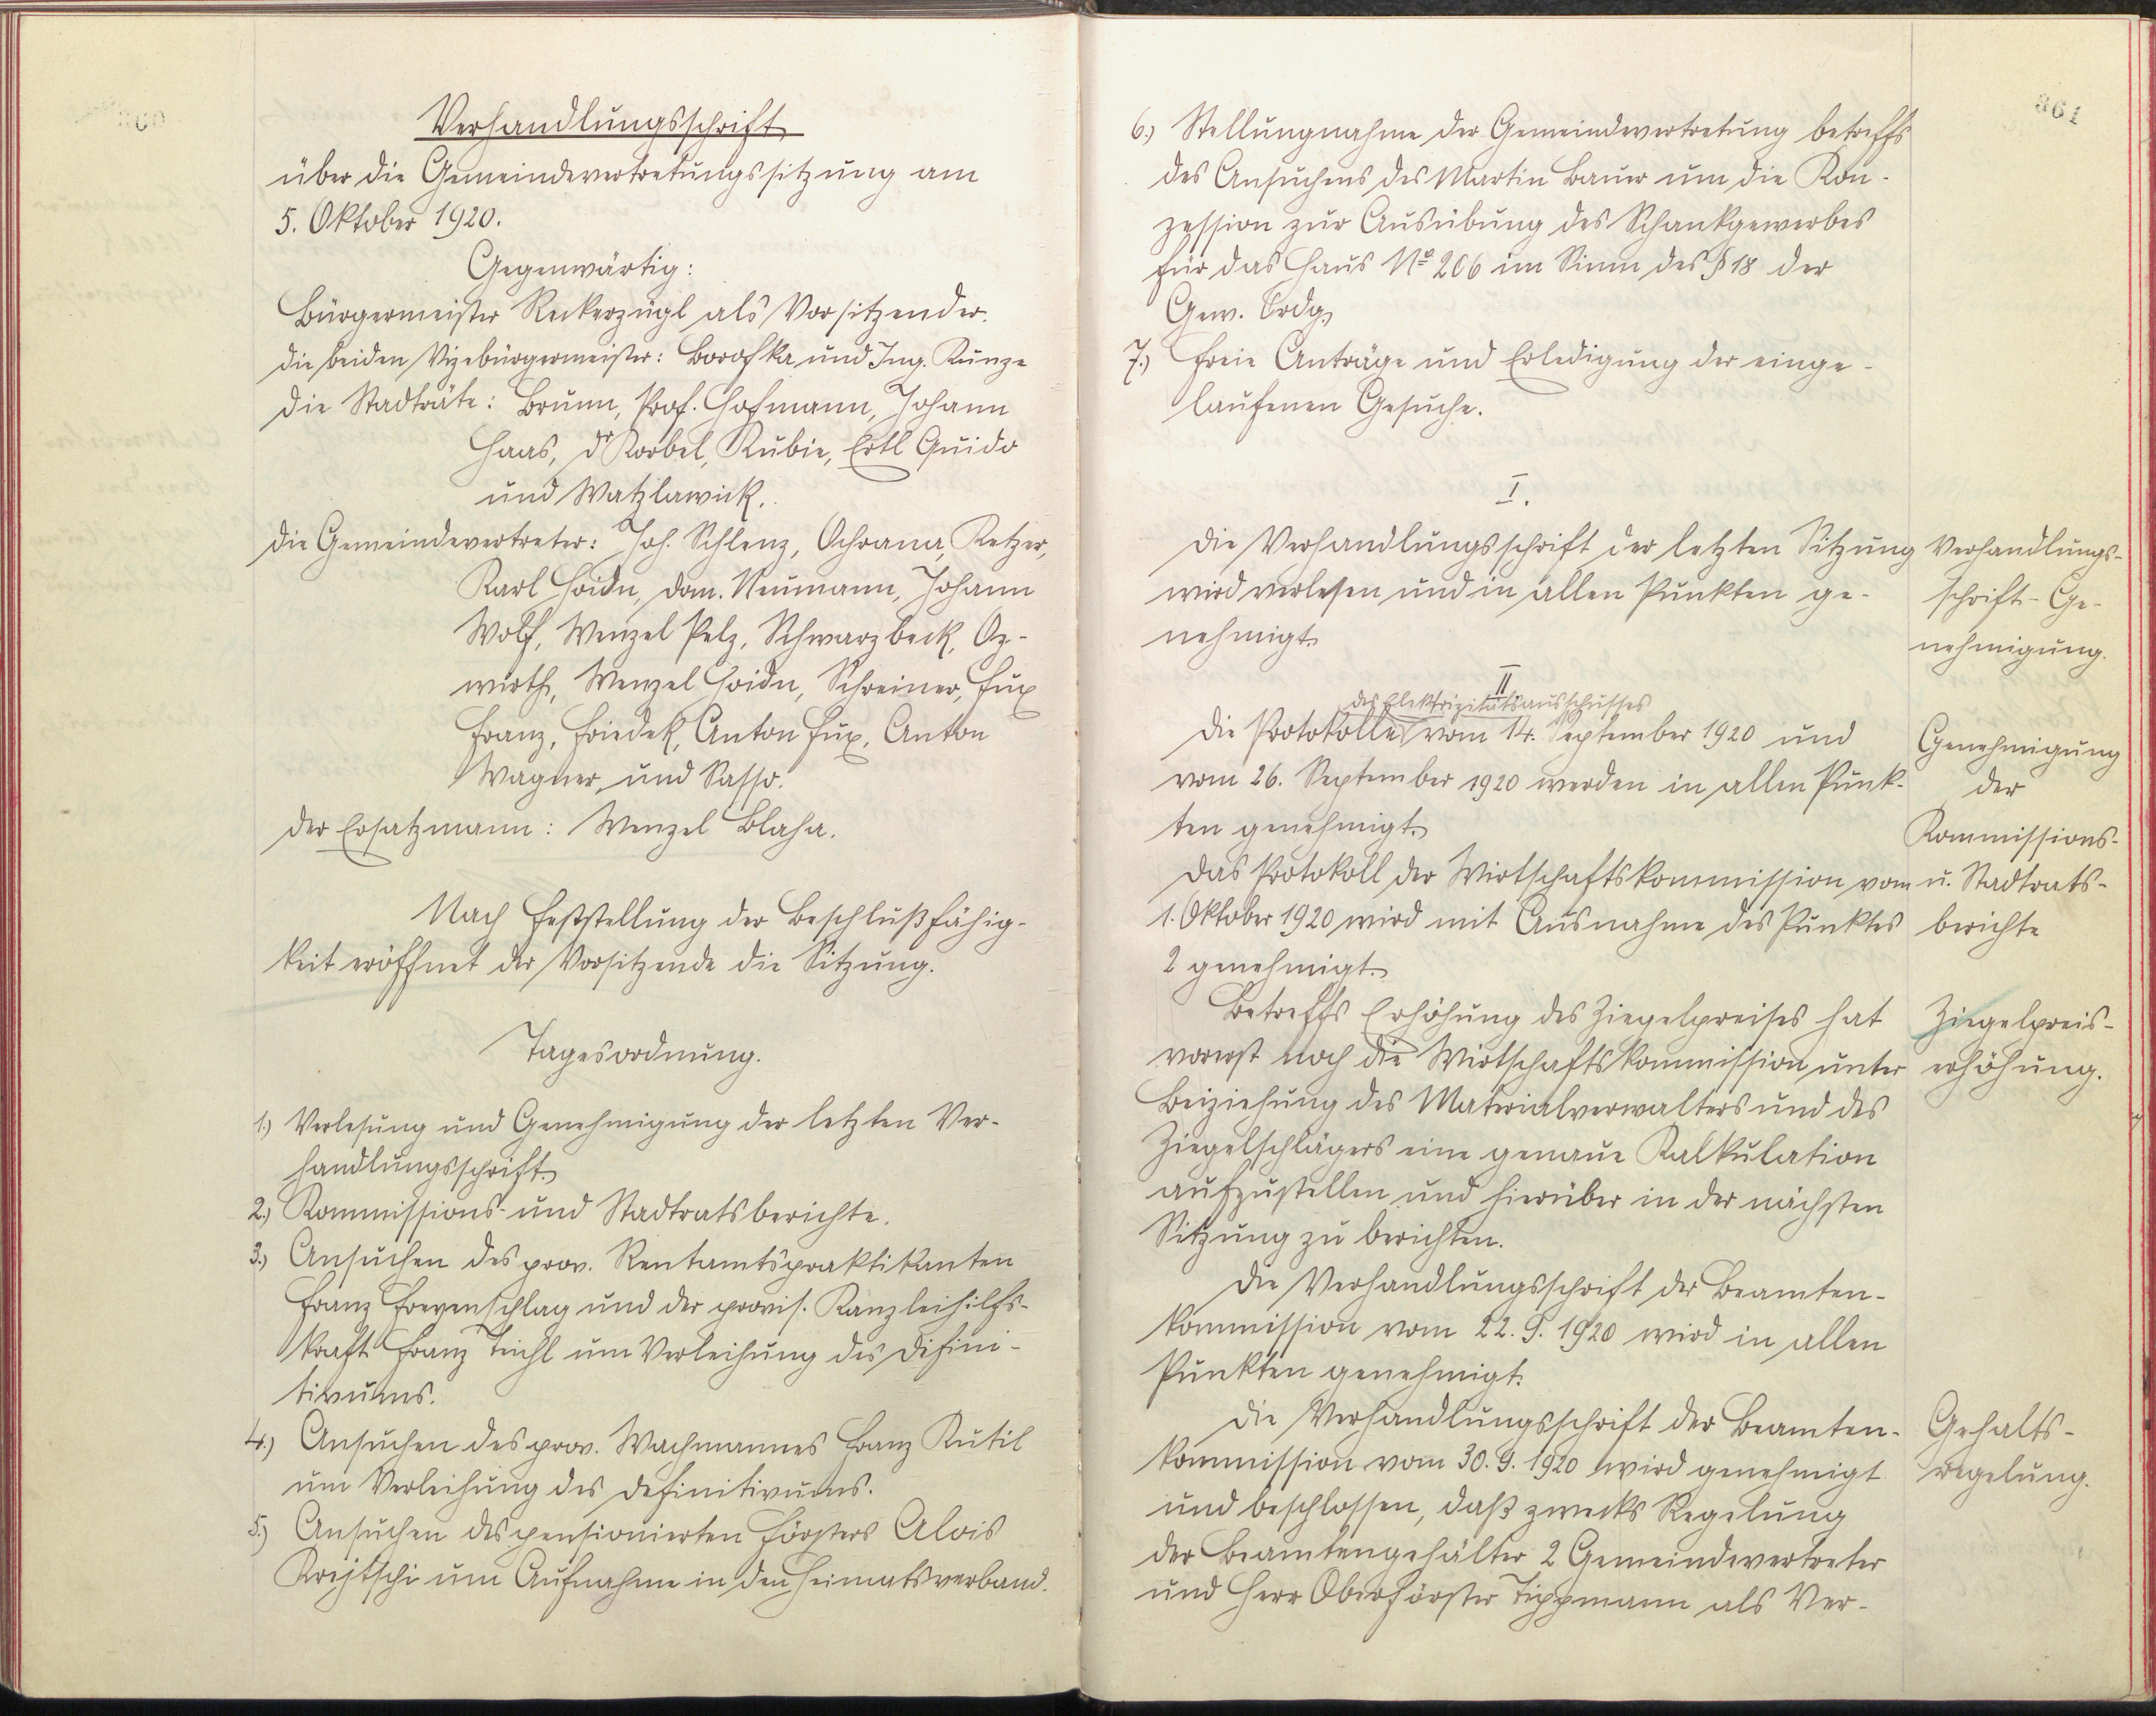 360
Verhandlungsschrift
über die Gemeindevertretungssitzung am
5. Oktober 1920.
Gegenwärtig:
Bürgermeister Reckerzügl als Vorsitzender.
die beiden Vizebürgermeister: Borofka und Ing. Kunze
die Stadträte: Brunn, Prof. Hofmann, Johann
Haas, Dr Korbel, Kubie, Ertl Guido
und Watzlawick.
die Gemeindevertreter: Joh. Schlenz, Ochrana, Ketzer,
Karl Hoidn, Dom. Neumann, Johann
Wolf, Wenzel Pelz, Schwarzbeck, Oz-
wirth, Wenzel Hoidn, Schreiner, Fux
Franz, Friedek, Anton Fux, Anton
Wagner und Sasso.
der Ersatzmann: Wenzel Blaha.
Nach Feststellung der Beschlußfähig-
keit eröffnet der Vorsitzende die Sitzung.
Tagesordnung.
1.) Verlesung und Genehmigung der letzten Ver-
handlungsschrift.
2.) Kommissions- und Stadtratsberichte.
3.) Ansuchen des prov. Rentamtspraktikanten
Franz Freyenschlag und der provis. Kanzleihilfs-
kraft Franz Teichl um Verleihung des Difini-
tivums.
4.) Ansuchen des prov. Wachmannes Franz Kutil
um Verleihung des Definitivums.
5.) Ansuchen des pensionierten Försters Alois
Krejtschi um Aufnahme in den Heimatsverband.
361
6.) Stellungnahme der Gemeindevertretung betreffs
des Ansuchens des Martin Bauer um die Kon-
zession zur Ausübung des Schankgewerbes
für das Haus No 206 im Sinne des § 18 der
Gew. Ordg.
7.) Freie Anträge und Erledigung der einge-
laufenen Gesuche.
I.
Die Verhandlungsschrift der letzten Sitzung
wird verlesen und in allen Punkten ge-
nehmigt.
Verhandlungs-
schrift-Ge-
nehmigung.
II
des Elektrizitätsausschusses
Die Protokolle vom 14. September 1920 und
vom 26. September 1920 werden in allen Punk-
ten genehmigt.
Das Protokoll der Wirtschaftskommission vom
1. Oktober 1920 wird mit Ausnahme des Punktes
2 genehmigt.
Genehmigung
der
Kommissions-
u. Stadtrats-
berichte
Betreffs Erhöhung des Ziegelpreises hat
vorerst noch die Wirtschaftskommission unter
Beiziehung des Materialverwalters und des
Ziegelschlägers eine genaue Kalkulation
aufzustellen und hierüber in der nächsten
Sitzung zu berichten.
Ziegelpreis-
erhöhung.
Die Verhandlungsschrift der Beamten-
kommission vom 22. 9. 1920 wird in allen
Punkten genehmigt.
Die Verhandlungsschrift der Beamten-
kommission vom 30. 9. 1920 wird genehmigt
und beschlossen, daß zwecks Regelung
der Beamtengehälter 2 Gemeindevertreter
und Herr Oberförster Tippmann als Ver-
Gehalts-
regelung.